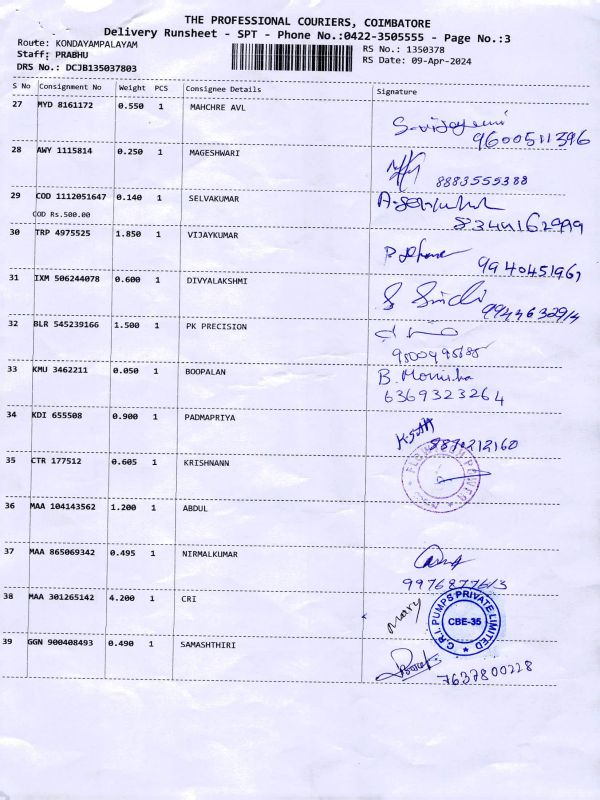 THE PROFESSIONAL COURIERS, COIMBATORE
Delivery Runsheet - SPT - Phone No.:0422-3505555 - Page No.:3
Route: KONDAYAMPALAYAM
RS No.: 1350378
Staff: PRABHU
RS Date: 09-Apr-2024
DRS No.: DCJB135037803
S No Consignment No Weight PCS Consignee Details Signature
27 MYD 8161172 0.550 1 MAHCHRE AVL
9600511396
28 AWY 1115814 0.250 1 MAGESHWARI
8883555388
29 COD 1112051647 0.140 1 SELVAKUMAR
COD Rs.500.00
30 TRP 4975525 1.850 1 VIJAYKUMAR
31 IXM 506244078 0.600 1 DIVYALAKSHMI
32 BLR 545239166 1.500 1 PK PRECISION
33 KMU 3462211 0.050 1 BOOPALAN
B. Monisha
6369323264
34 KDI 655508 0.900 1 PADMAPRIYA
35 CTR 177512 0.605 1 KRISHNANN
36 MAA 104143562 1.200 1 ABDUL
37 MAA 865069342 0.495 1 NIRMALKUMAR
38 MAA 301265142 4.200 1 CRI
Mary
C.R.I. PUMPS PRIVATE LIMITED
CBE-35
39 GGN 900408493 0.490 1 SAMASHTHIRI
7637800228